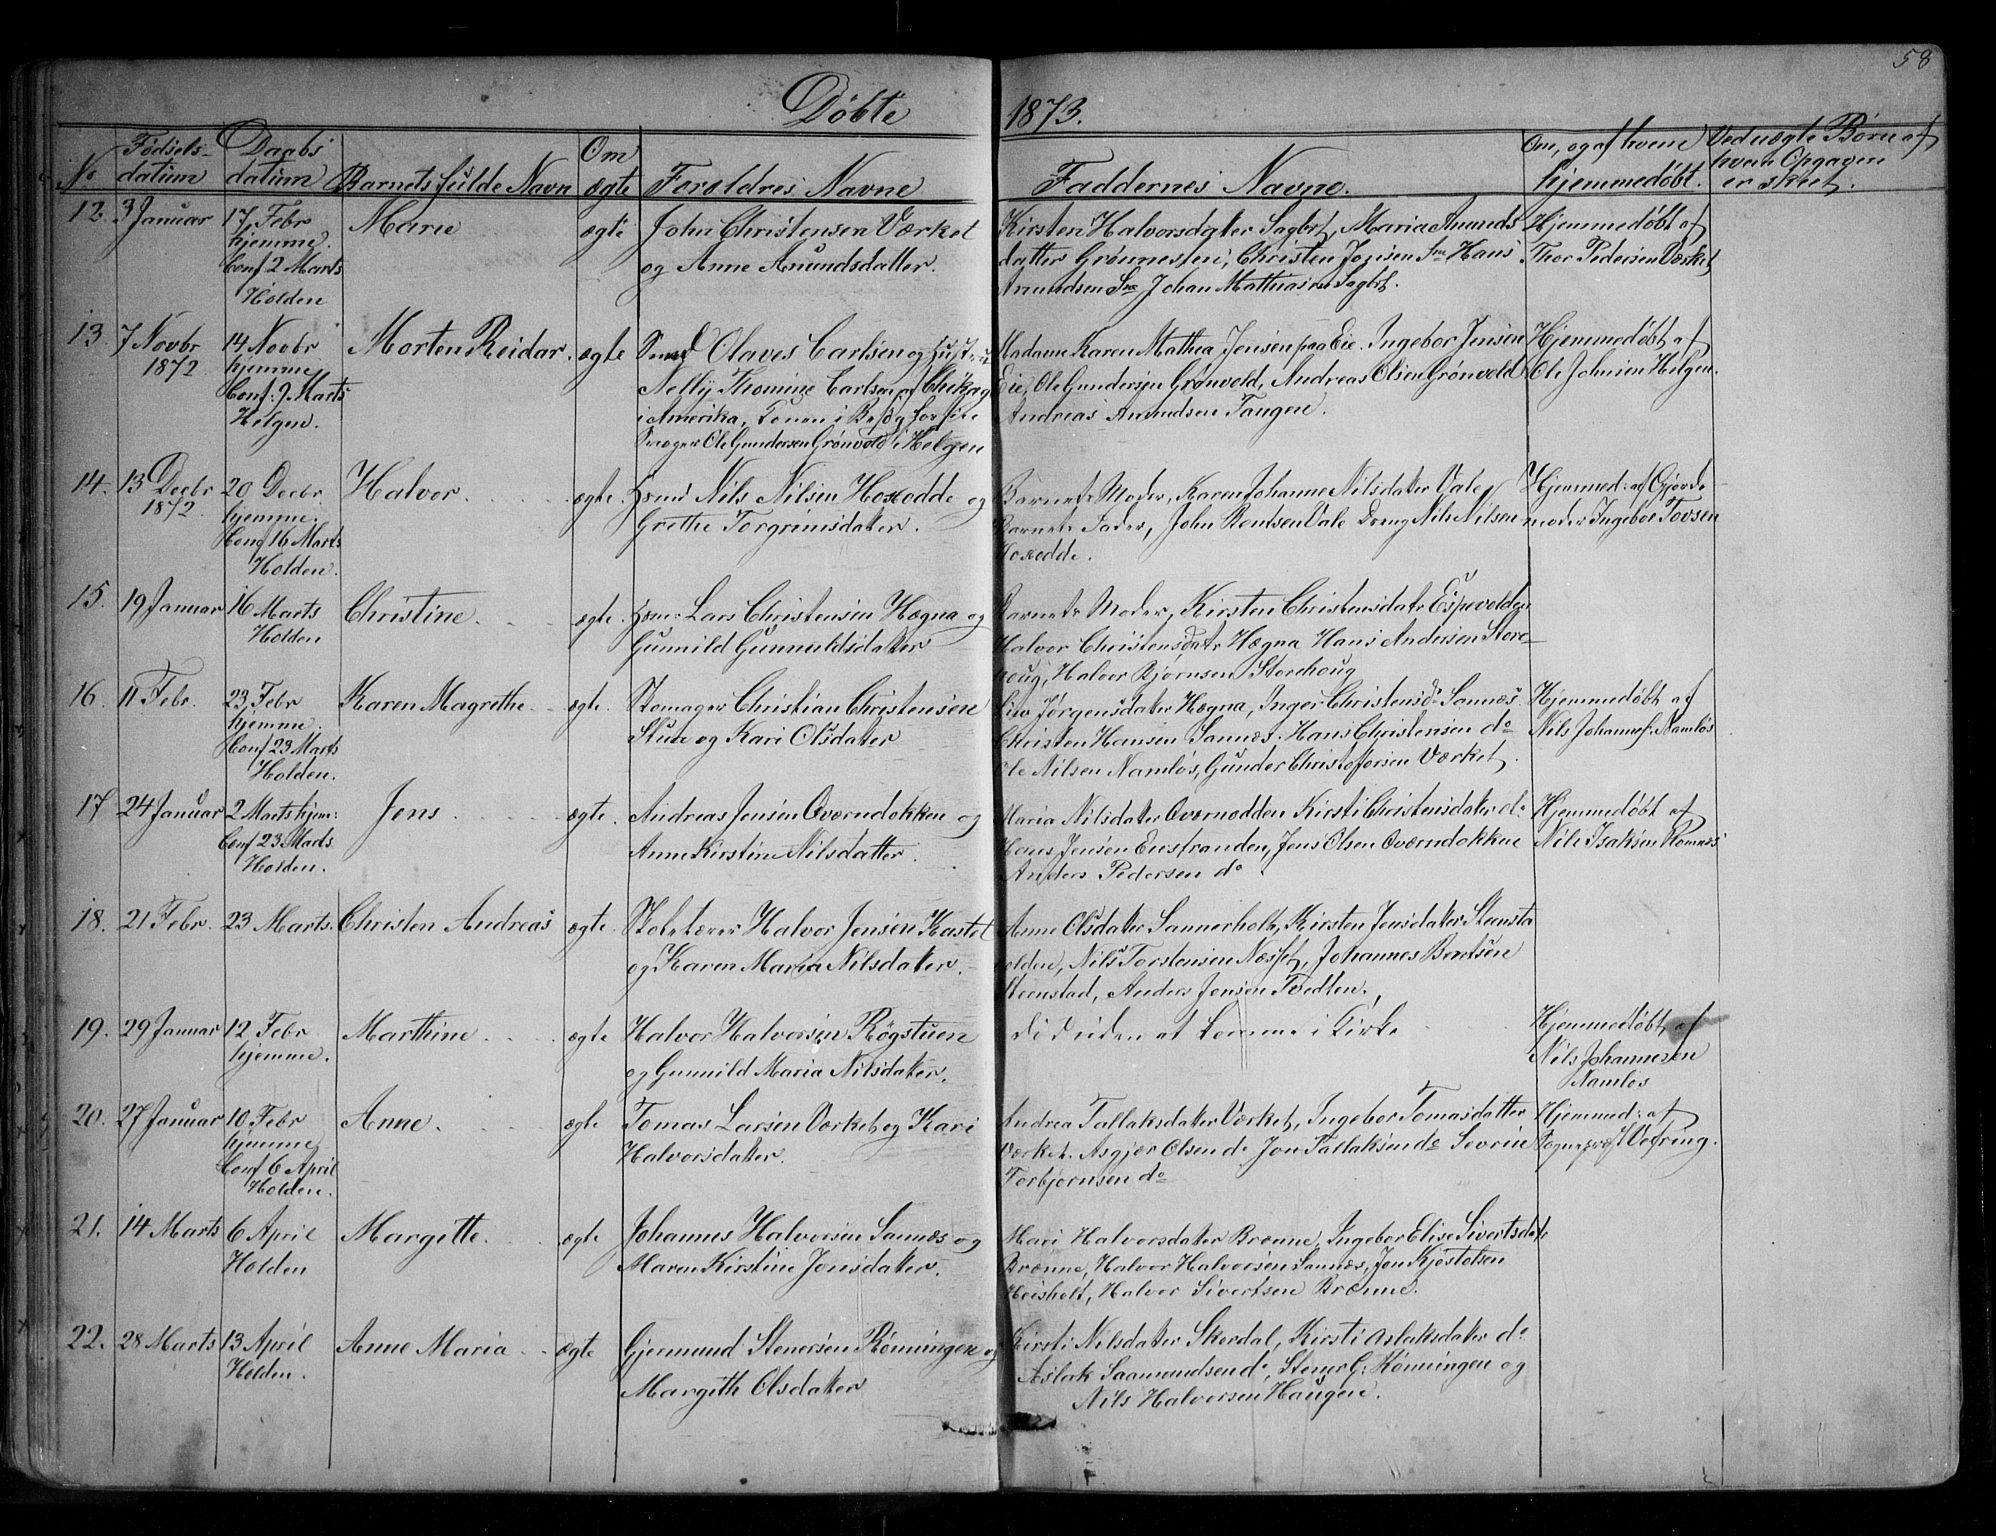 58
Døbte 1873.
No Fødsels-datum Daabs datum Barnets fulde Navn Om ægte Forældres Navne Faddernes Navne. Om, og af hvem hjemmedøbt. Ved uægte Børn af hvem Opgaven er skeet.
12. 3 Januar 17 Febr hjemme. Conf. 2 Marts Holden
Marie ægte John Christensen Værket
og Anne Anundsdatter.
Kirsten Halvorsdater Sagbr, Maria Anunds
datter Grønnesteri, Christen Jonsen Sne Hans
Anundsen Sne Johan Mathiasen Sagbr.
Hjemmedøbt af
Thor Pedersen Værket
13. 7 Novbr 1872 14 Novbr hjemme Conf: 2 Marts Helgen.
Morten Reidar. ægte Smed Olaves Carlsen og Hustru
Nelly Thomine Carlsen af Chikago
i Amerika, kommen i Besøg hos sin
Svoger Ole Gundersen Grønvold i Helgen
Madame Karen Mathea Jensen paa Eie. Ingebor Jensen
Eie, Ole Gundersen Grønvold, Andreas Olsen Grønvold
Andreas Anundsen Tangen.
Hjemmedøbt af
Ole Johnsen Helgen.
14. 13 Decbr 1872. 20 Decbr hjemme. Conf 16 Marts Holden.
Halvor. ægte. Nils Nilsen Hoxodde og
Grethe Torgrimsdater.
Barnets Moder, Karen Johanne Nilsdater Vale
Barnets Fader, John Rentsen Vale Dreng Nils Nilsen
Hoxodde.
Hjemmed: af Gjorde-
moder Ingebor Tovsen
15. 19 Januar 16 Marts Holden
Christine. ægte. Lars Christensen Hægna og
Gunnild Gunnuldsdater
Barnets Moder, Kirsten Christensdatr Espevolden
Halvor Christensdatr Hægna Hans Andersen Store-
houg, Halvor Bjørnsen Storehoug
16. 11 Febr. 23 Febr hjemme. Conf 23 Marts Holden.
Karen Magrethe ægte. Skomager Christian Christensen
Stue og Kari Olsdater
Siv Jørgensdater Hægna, Inger Christensdr Sannæs.
Christen Hansen Sannæs. Hans Christensen do
Ole Nilsen Namløs, Gunder Christofersen Værket.
Hjemmedøbt af
Nils Johannes. Namløs
17. 24 Januar 2 Marts hjem: Conf 23 Marts Holden.
Jens. ægte. Andreas Jensen Overndokken og
Anne Kirstine Nilsdatter.
Maria Nilsdater Overnodden Kirsti Christensdater do
Hans Jensen Eiestranden, Jens Olsen Overndokken
Anders Pedersen do
Hjemmedøbt af
Nils Isaksen Romnes
18. 21 Febr. 23 Marts.
Christen Andreas ægte. Skolelærer Halvor Jensen Kastet
og Karen Maria Nilsdater.
Anne Olsdater Sannerholt, Kirsten Jensdater Steensta
holden, Nils Torstensen Næsset, Johannes Berntsen
Steenstad, Anders Jensen Tvedten.
19. 29 Januar 12 Febr hjemme.
Marthine ægte Halvor Halvorsen Røgstuen
og Gunnild Maria Nilsdater.
Død uden at komme i Kirke
Hjemmedøbt af
Nils Johannesen
Namløs
20. 27 Januar 10 Febr hjemme Conf 6 April Holden.
Anne. ægte Tomas Larsen Værket og Kari
Halvorsdater.
Andrea Tallaksdater Værket, Ingebor Tomasdatter
Værket. Asgjær Olsen do Jon Tallaksen do Sevrin
Torbjørnsen do
Hjemmed: af
Sognepræst Vefring.
21. 14 Marts 6 April Holden
Margitte. ægte Johannes Halvorsen Sannæs og
Maren Kirstine Jonsdater.
Mari Halvorsdater Brænne, Ingebor Elise Sivertsdatr
Brænne, Halvor Halvorsen Sannæs, Jon Kjøstolsen
Heisholt, Halvor Sivertsen Brænne.
22. 28 Marts 13 April Holden.
Anne Maria ægte Gjermund Stenersen Rønningen og
Margith Olsdater
Kirsti Nilsdater Skerdal, Kirsti Aslaksdater do
Aslak Saamundsen do, Stener G: Rønningen og
Nils Halvorsen Haugen.